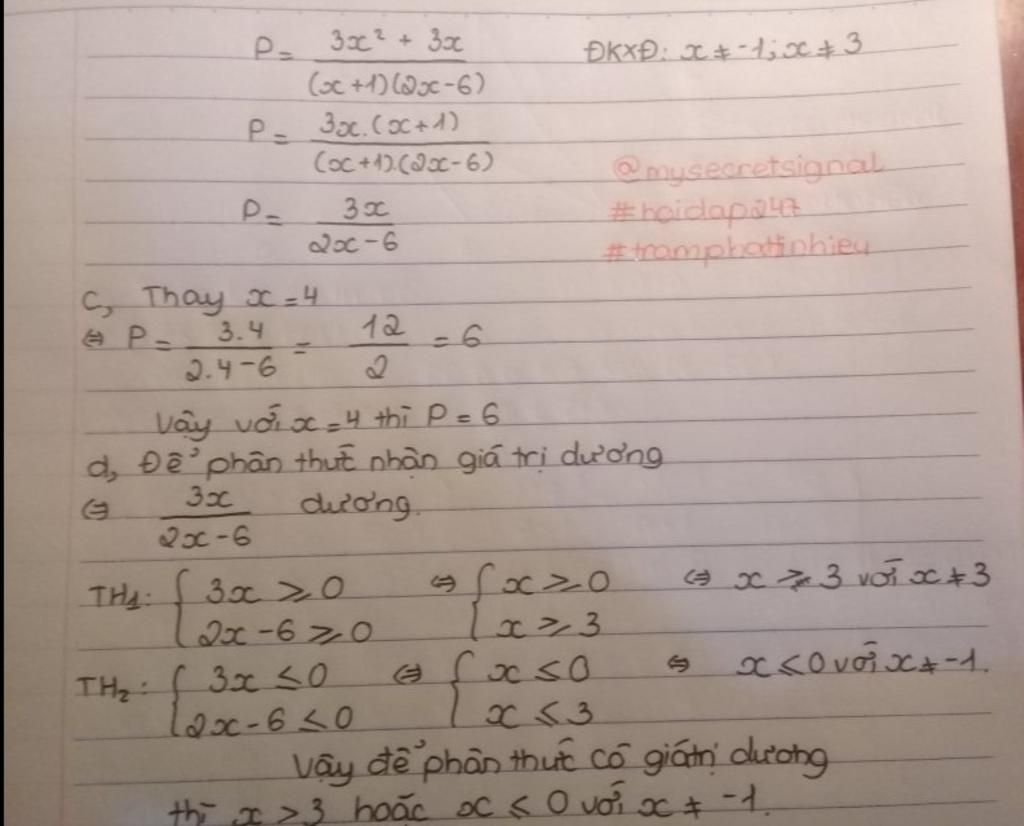 P = (3x² + 3x) / ((x+1)(2x-6)) ĐKXĐ: x ≠ -1; x ≠ 3
P = (3x.(x+1)) / ((x+1).(2x-6))
@mysecretsignal
P = 3x / (2x-6)
#hoidap247
#tramphattinhieu
c, Thay x = 4
⇔ P = (3.4) / (2.4-6) = 12/2 = 6
Vậy với x = 4 thì P = 6
d, Để phân thức nhận giá trị dương
⇔ 3x / (2x-6) dương.
TH1: { 3x ⩾ 0 ⇔ { x ⩾ 0 ⇔ x ⩾ 3 với x ≠ 3
2x-6 ⩾ 0 x ⩾ 3
TH2: { 3x ≤ 0 ⇔ { x ≤ 0 ⇔ x ≤ 0 với x ≠ -1.
2x-6 ≤ 0 x ≤ 3
Vậy để phân thức có giá trị dương
thì x > 3 hoặc x ≤ 0 với x ≠ -1.